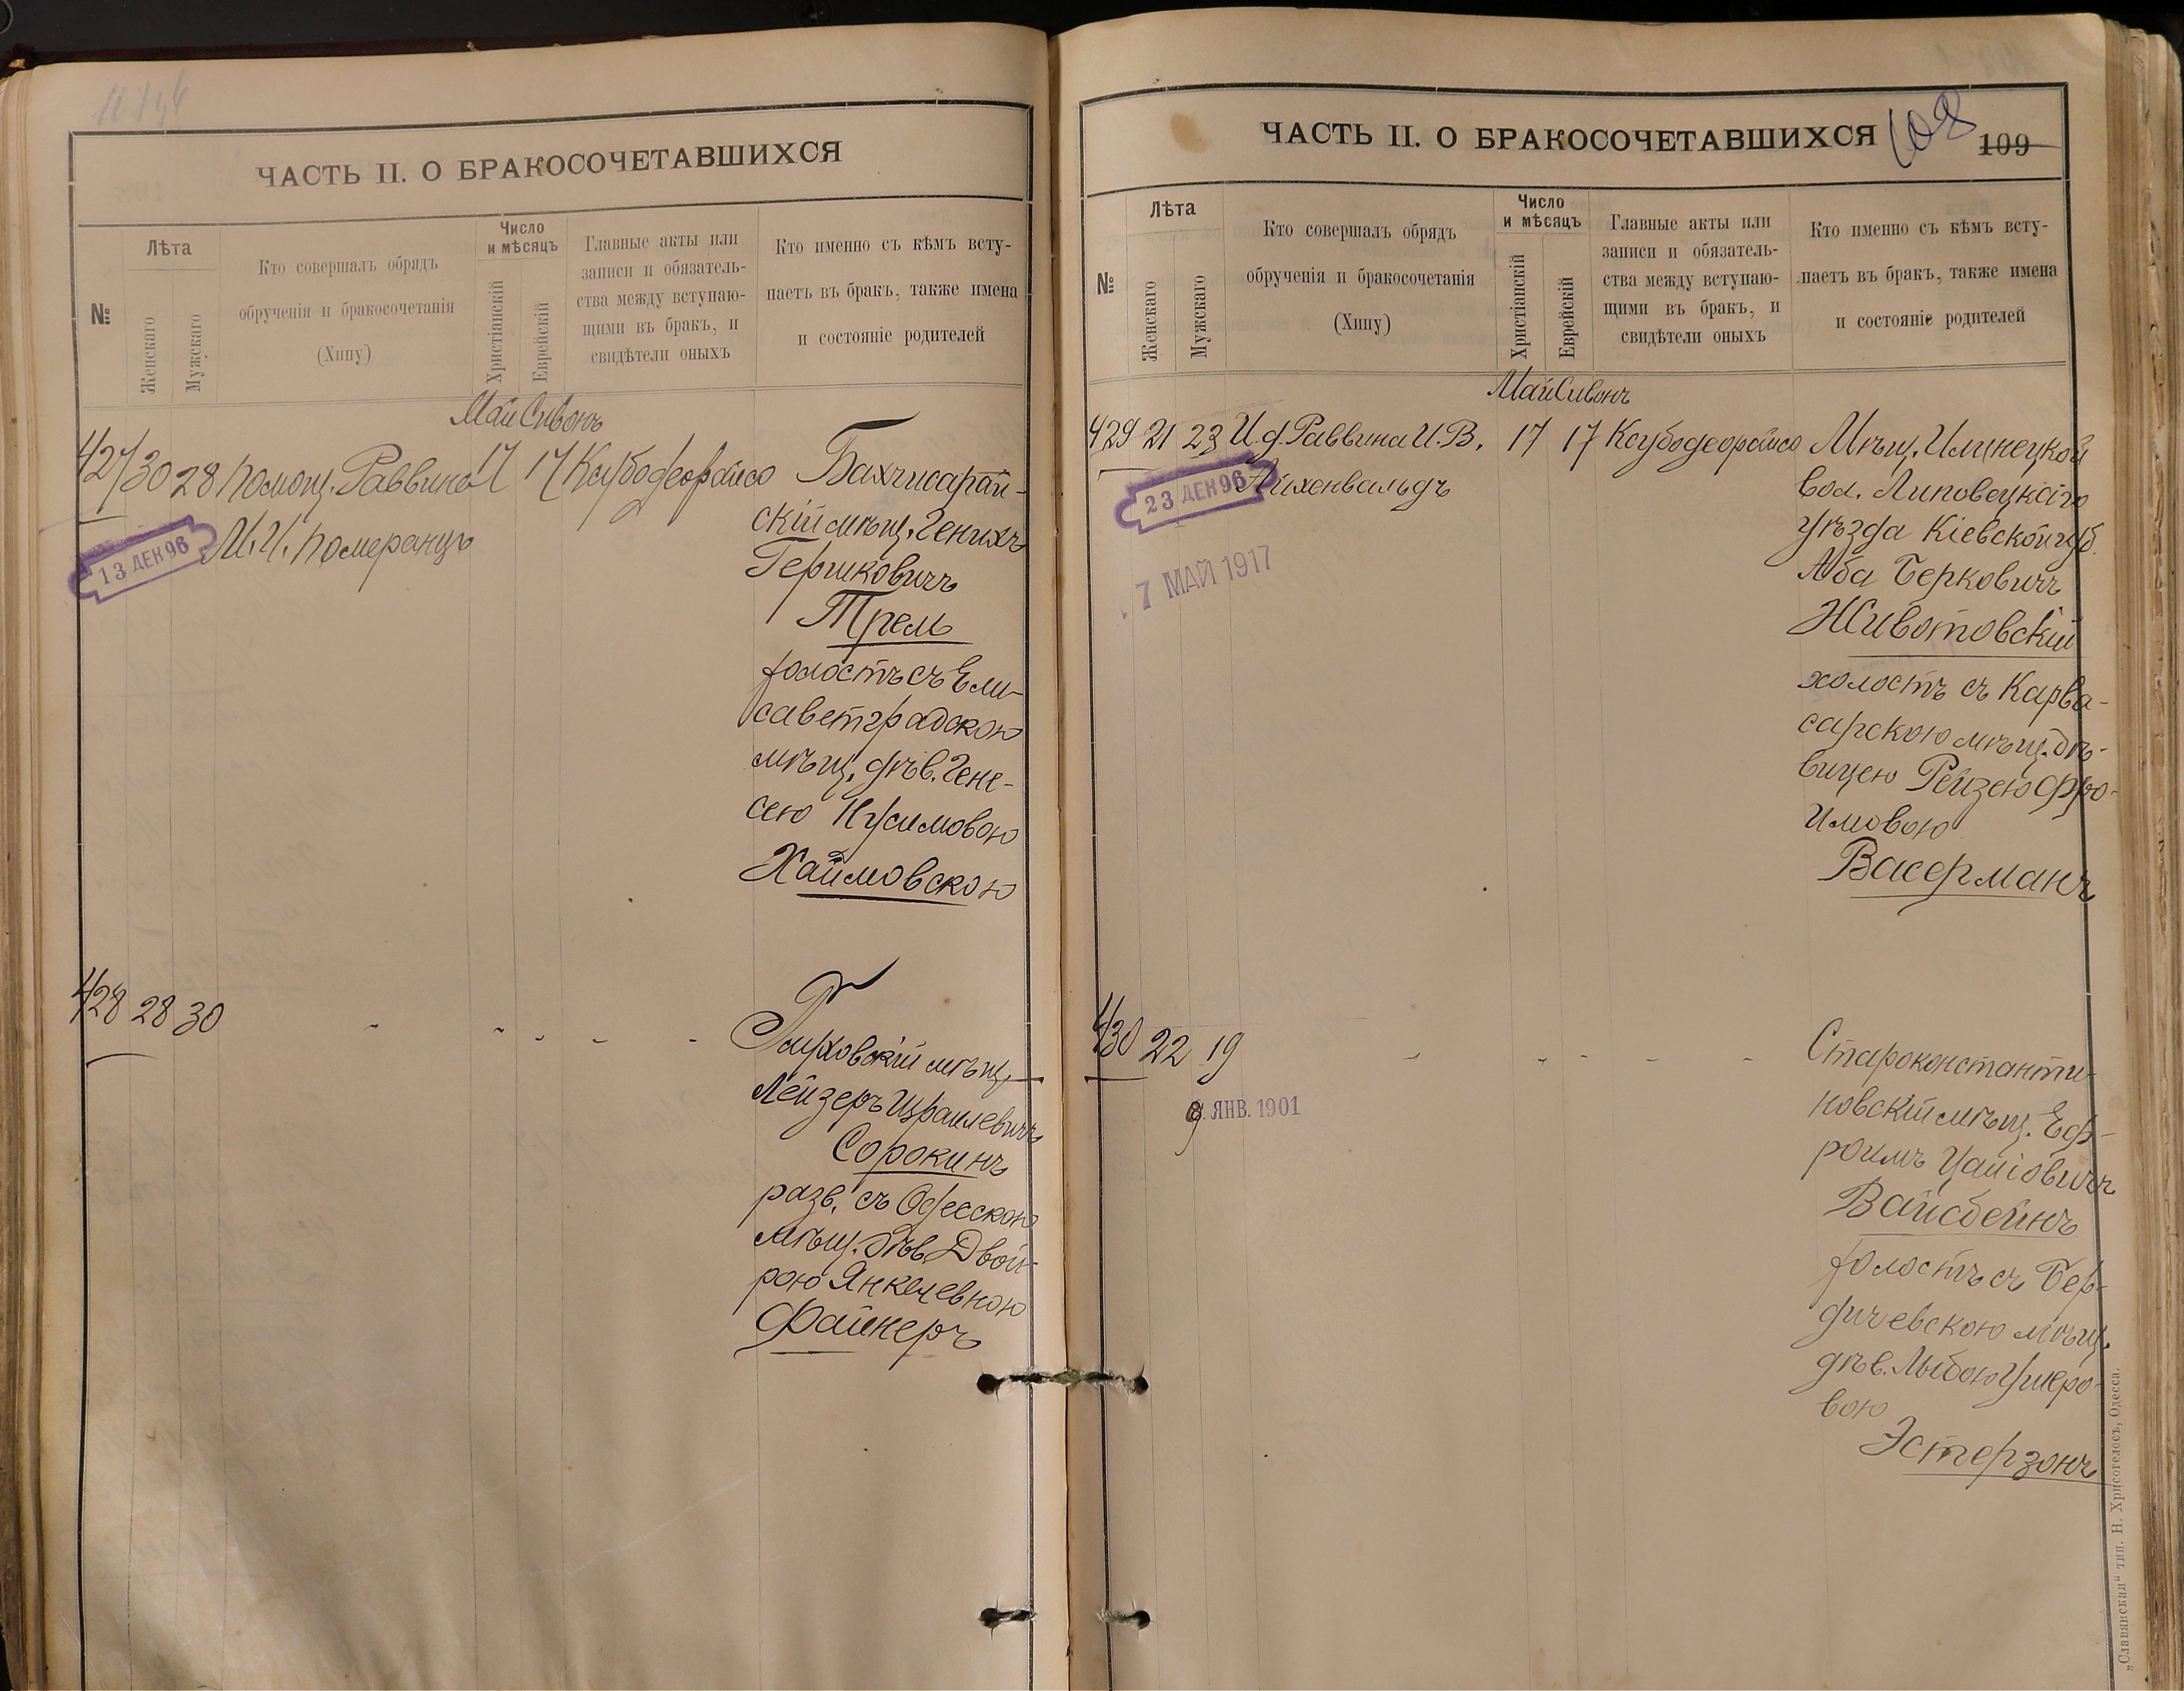 ЧАСТЬ II. О БРАКОСОЧЕТАВШИХСЯ
№
Лѣта
Женскаго
Мужскаго
Кто совершалъ обрядъ
обрученія и бракосочетанія
(Хипу)
Число
и мѣсяцъ
Христіанскій
Еврейскій
Главные акты или
записи и обязатель-
ства между вступаю-
щими въ бракъ, и
свидѣтели оныхъ
Кто именно съ кѣмъ всту-
паетъ въ бракъ, также имена
и состояніе родителей
Май Сивонъ
427 30 28 Помощ. Раввина 17 17 Ксубодеорайсо Бахчисарай-
скій мѣщ. Генихъ
13 ДЕК 96
М. И. Померанцъ
Гершковичъ
Трель
холостъ съ Ели-
саветградскою
мѣщ. дѣв. Гене-
сею Нусимовою
Хаймовскою
428 28 30 - - - - - Глуховскій мѣщ.
Лейзеръ Израилевичъ
Сорокинъ
разв. съ Одесскою
мѣщ. дѣв. Двой-
рою Янкелевною
Файнеръ
ЧАСТЬ II. О БРАКОСОЧЕТАВШИХСЯ
108
109
№
Лѣта
Женскаго
Мужскаго
Кто совершалъ обрядъ
обрученія и бракосочетанія
(Хипу)
Число
и мѣсяцъ
Христіанскій
Еврейскій
Главные акты или
записи и обязатель-
ства между вступаю-
щими въ бракъ, и
свидѣтели оныхъ
Кто именно съ кѣмъ всту-
паетъ въ бракъ, также имена
и состояніе родителей
Май Сивонъ
429 21 23 И. д. Раввина И. В. 17 17 Ксубодеорайсо Мѣщ. Илинецкой
23 ДЕК 96
Айхенвальдъ
вол. Липовецкаго
уѣзда Кіевской губ.
7 МАЙ 1917
Аба Берковичъ
Животовскій
холостъ съ Карва-
сарскою мѣщ. дѣ-
вицею Рейзею Фро-
имовою
Васерманъ
430 22 19 - - - - - Староконстанти-
новскій мѣщ. Еф-
9. ЯНВ. 1901
роимъ Цаліовичъ
Вайсбейнъ
холостъ съ Бер-
дичевскою мѣщ.
дѣв. Лыбою Ушеро-
вою
Эстерзонъ
„Славянская“ тип. Н. Хрисогелосъ, Одесса.